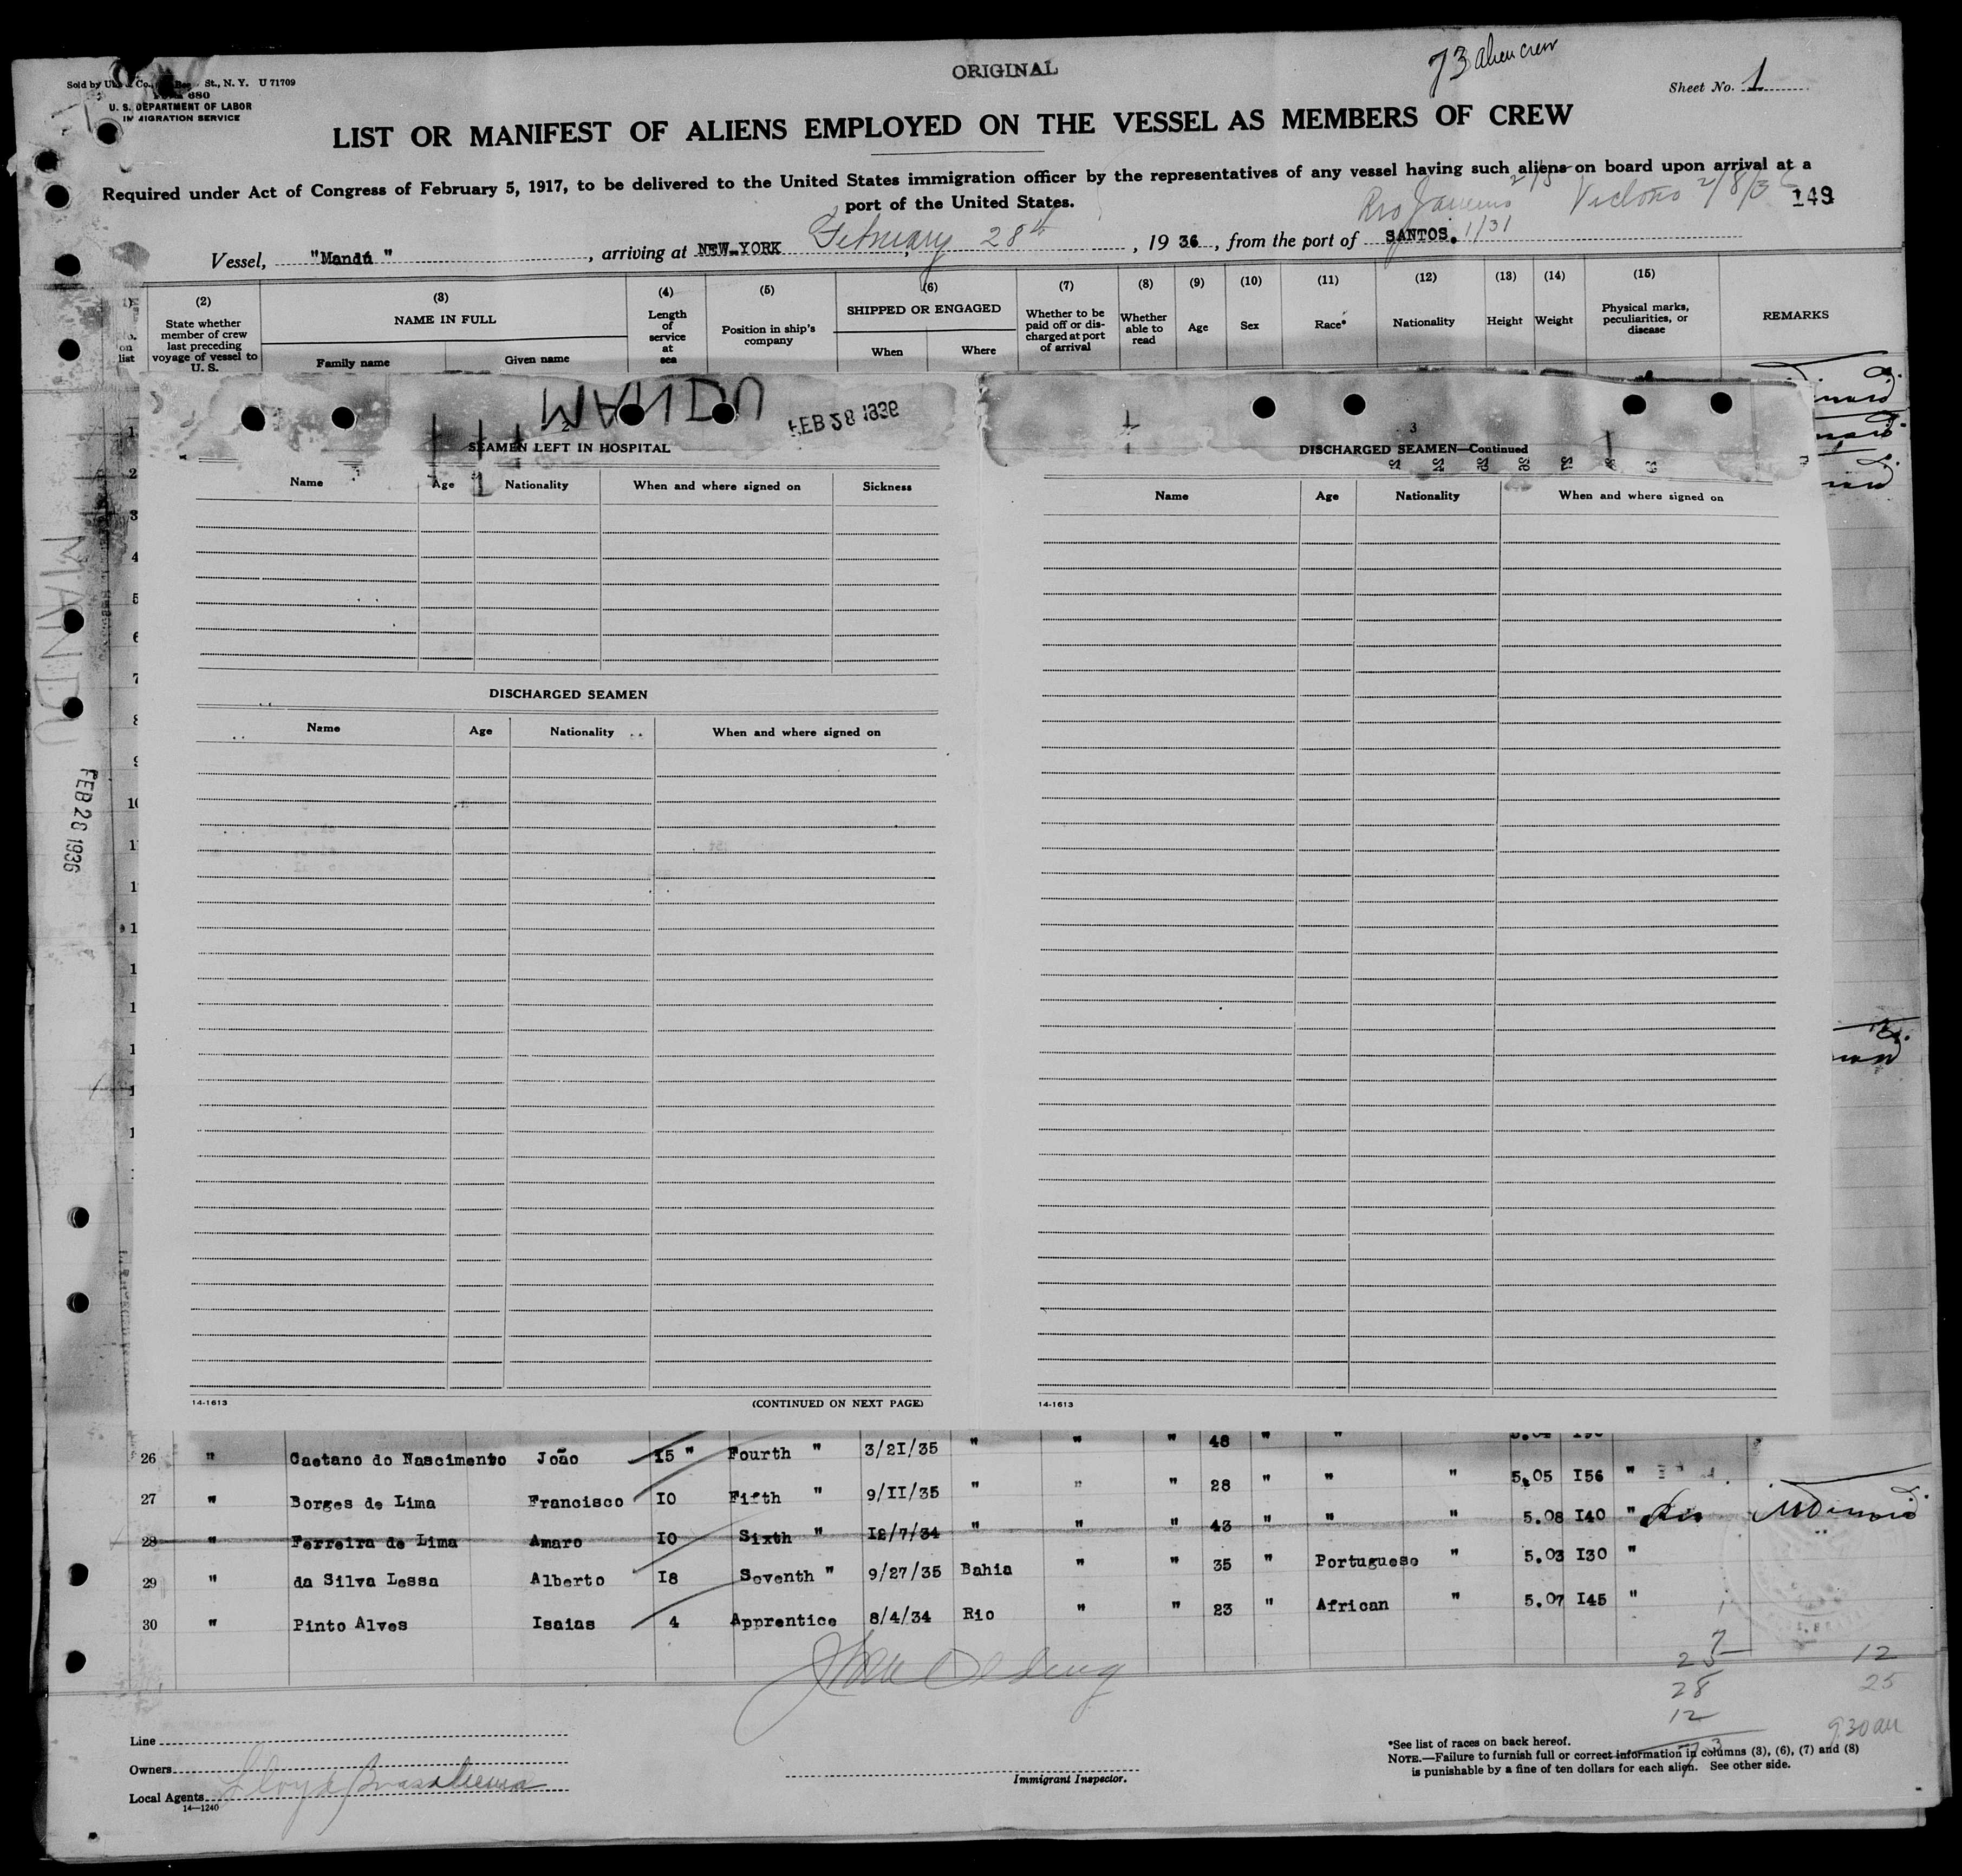 ORIGINAL
73 alien crew
Sold by U Co., St., N. Y. U 71709
680
U. S. DEPARTMENT OF LABOR
IMMIGRATION SERVICE
Sheet No. 1
LIST OR MANIFEST OF ALIENS EMPLOYED ON THE VESSEL AS MEMBERS OF CREW
Required under Act of Congress of February 5, 1917, to be delivered to the United States immigration officer by the representatives of any vessel having such aliens on board upon arrival at a
port of the United States.
Rio Janeiro 2/5 Victoria 2/8/36 149
Vessel, "Mandú", arriving at NEW-YORK February 28th, 1936, from the port of SANTOS. 1/31
(2) (3) (4) (5) (6) (7) (8) (9) (10) (11) (12) (13) (14) (15)
No. on list
State whether member of crew last preceding voyage of vessel to U. S.
NAME IN FULL
Family name Given name
Length of service at sea
Position in ship's company
SHIPPED OR ENGAGED
When Where
Whether to be paid off or discharged at port of arrival
Whether able to read
Age
Sex
Race*
Nationality
Height
Weight
Physical marks, peculiarities, or disease
REMARKS
MANDU
FEB 28 1936
2
SEAMEN LEFT IN HOSPITAL
Name Age Nationality When and where signed on Sickness
DISCHARGED SEAMEN
Name Age Nationality When and where signed on
14-1613 (CONTINUED ON NEXT PAGE)
3
DISCHARGED SEAMEN—Continued
Name Age Nationality When and where signed on
14-1613
1
2
3
4
5
6
7
8
9
10
MANDU
FEB 28 1936
26 " Caetano do Nascimento João 15 " Fourth " 3/21/35 " " " 48 " "
27 " Borges de Lima Francisco 10 Fifth " 9/11/35 " " " 28 " " " 5.05 156 "
28 " Ferreira de Lima Amaro 10 Sixth " 12/7/34 " " " 43 " " " 5.08 140 "
29 " da Silva Lessa Alberto 18 Seventh " 9/27/35 Bahia " " 35 " Portuguese " 5.03 130 "
30 " Pinto Alves Isaias 4 Apprentice 8/4/34 Rio " " 23 " African " 5.07 145 "
7
25
28
12
73
12
25
930 am
Line
Owners
Lloyd Brasileiro
Local Agents
14—1240
Immigrant Inspector.
*See list of races on back hereof.
NOTE.—Failure to furnish full or correct information in columns (3), (6), (7) and (8)
is punishable by a fine of ten dollars for each alien. See other side.